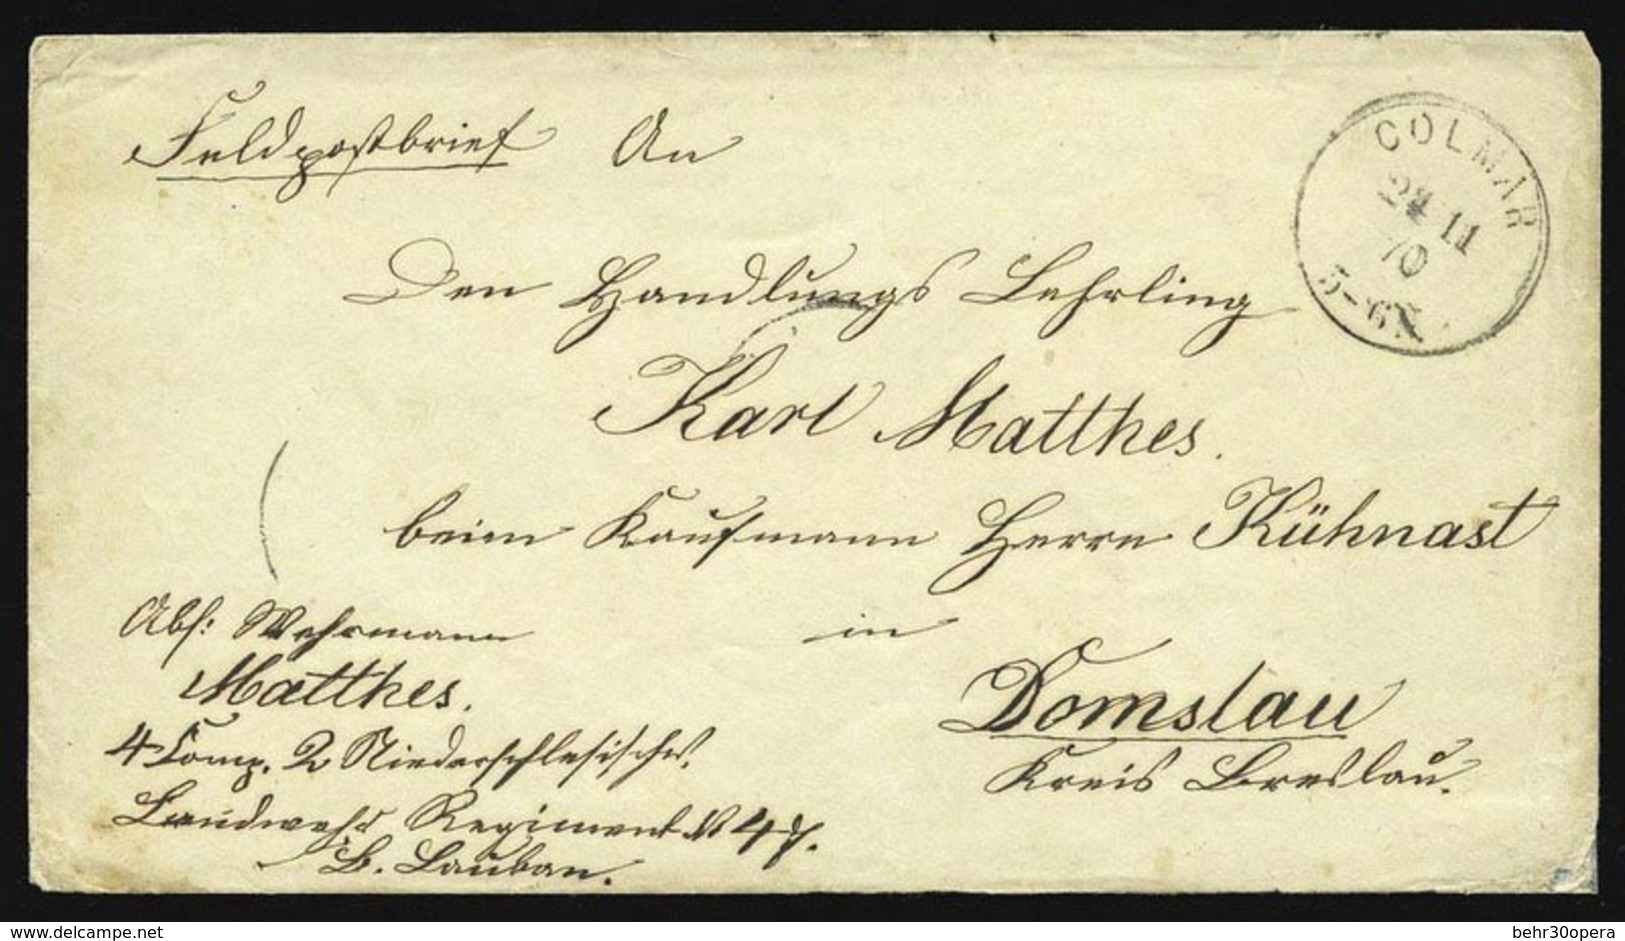 Feldpostbrief An
COLMAR
24 11
70
5-6N
Den Handlungs Lehrling
Karl Matthes.
beim Kaufmann Herrn Kühnast
in
Domslau
Kreis Breslau.
Abs: Wehrmann
Matthes.
4 Comp. 2 Niederschlesisches.
Landwehr Regiment № 47.
B. Lauban.
delcampe.net
behr30opera